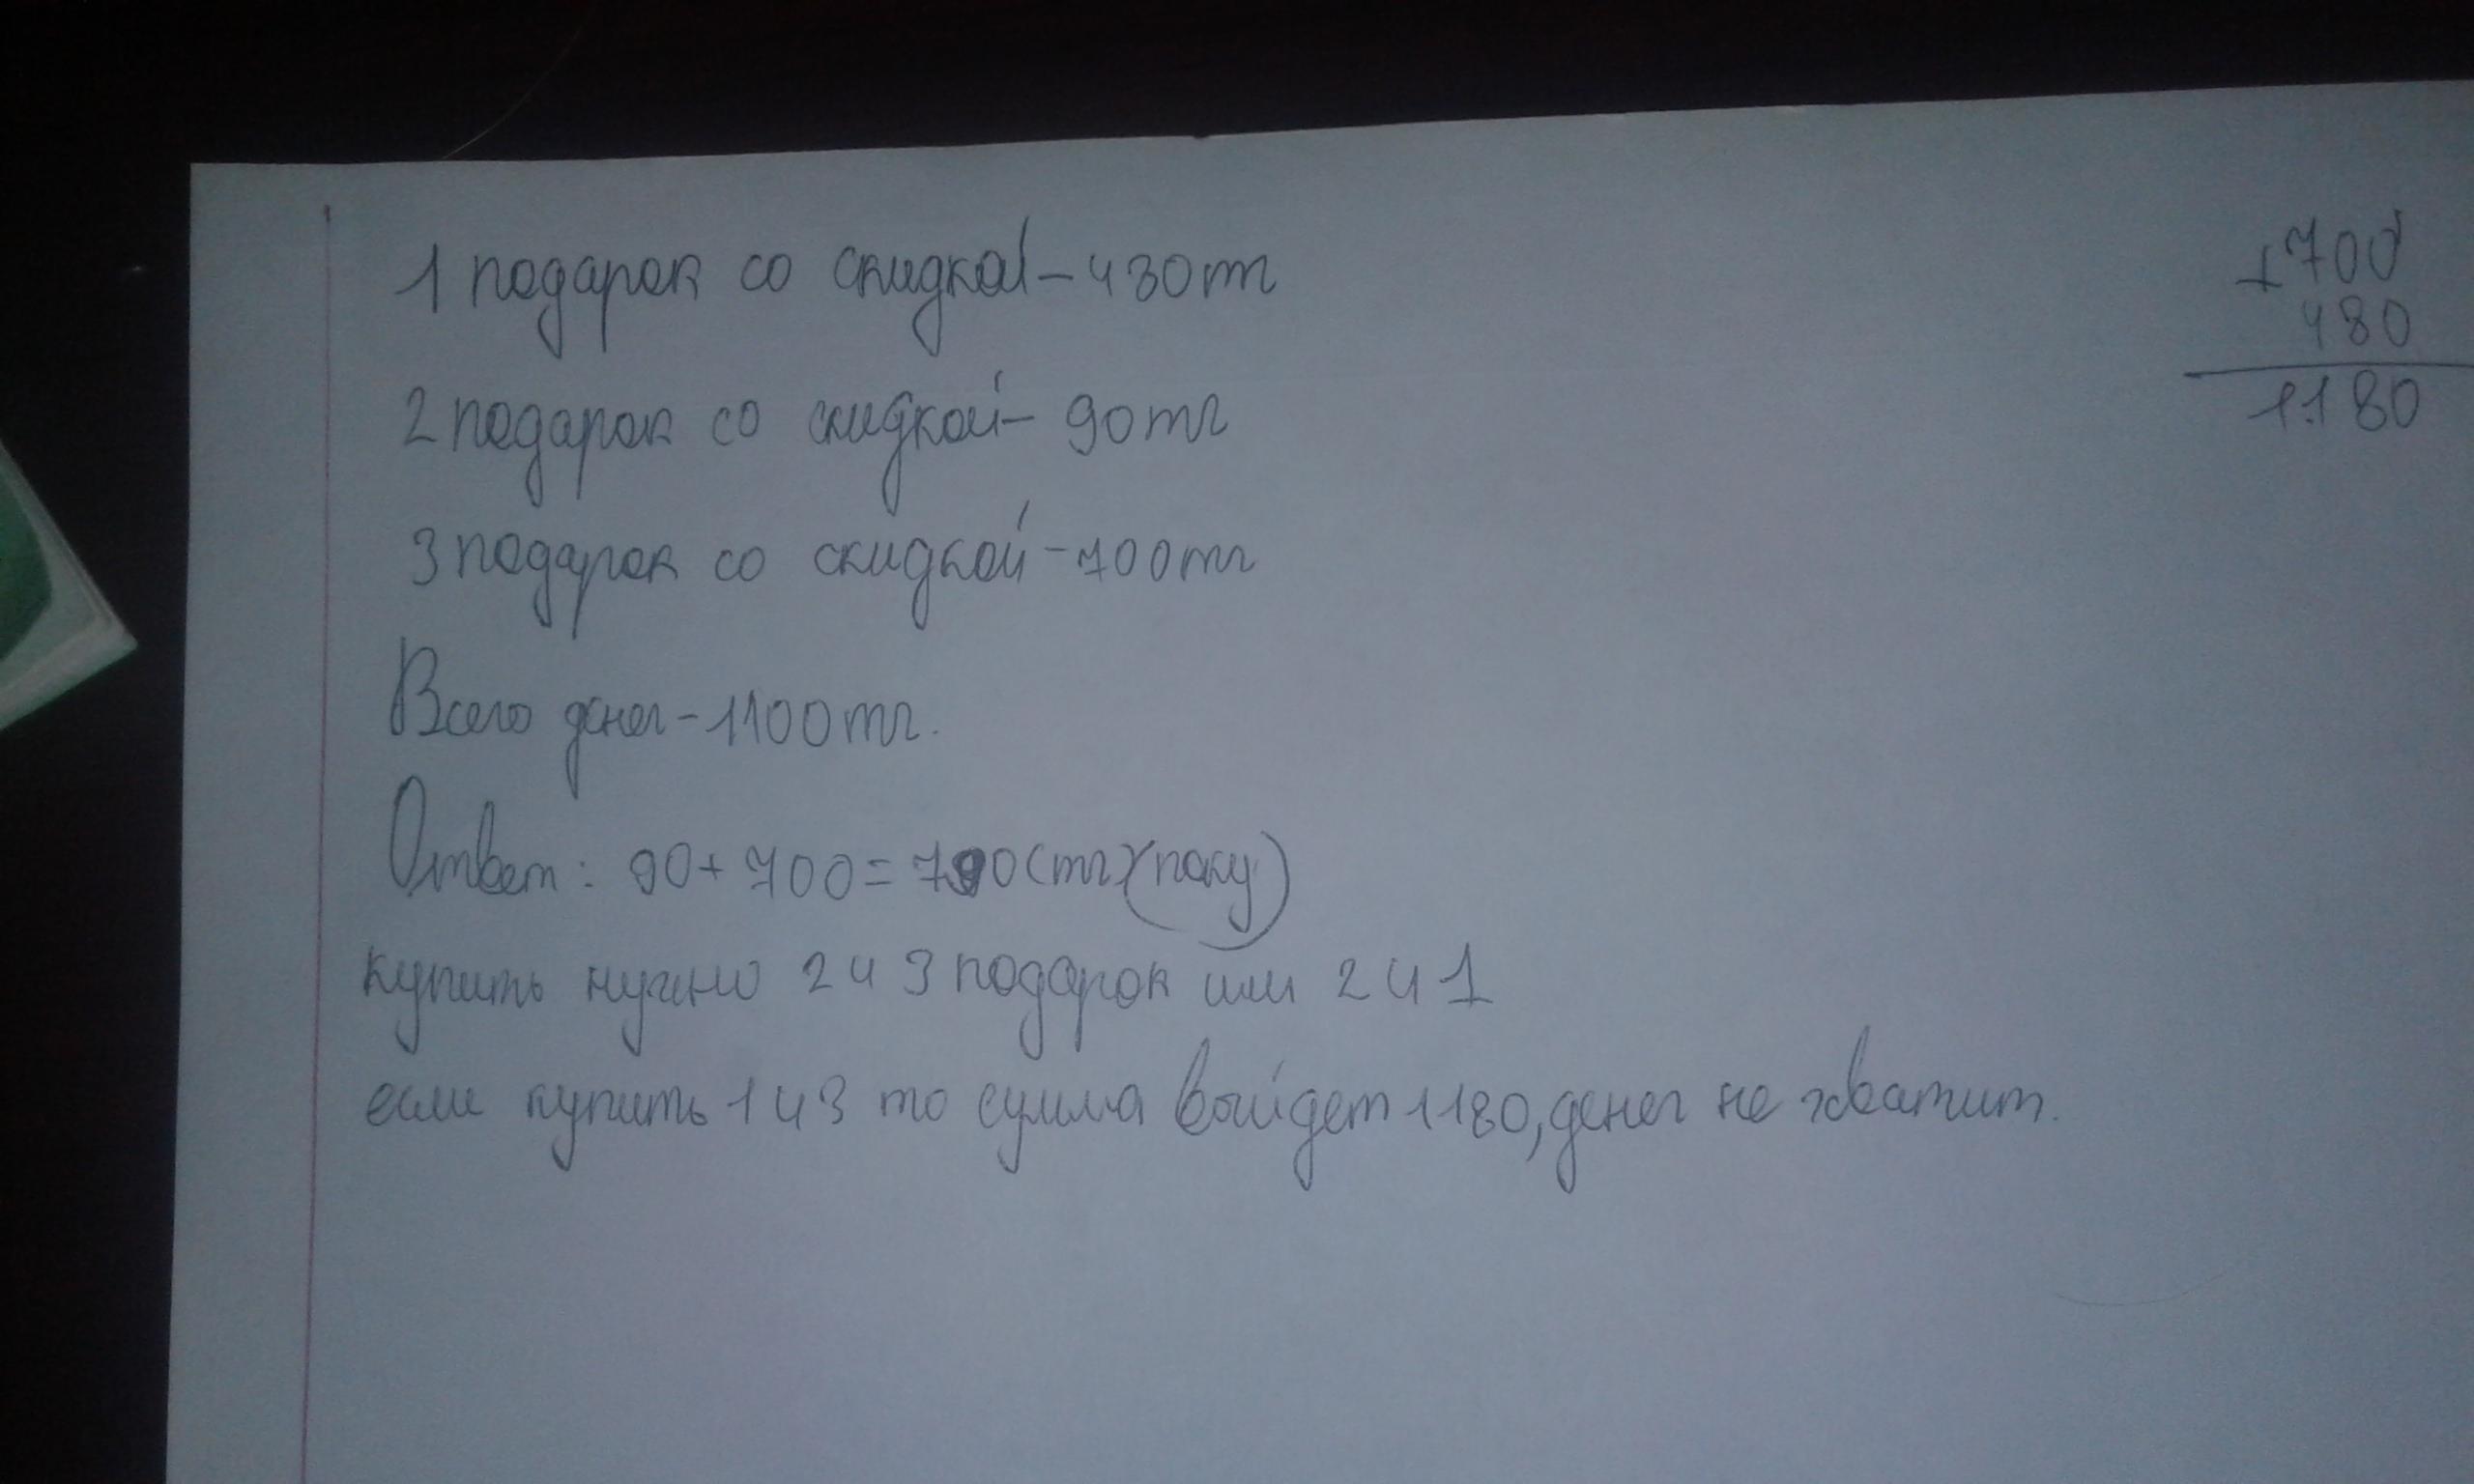 1 подарок со скидкой - 480тг
2 подарок со скидкой - 90тг
3 подарок со скидкой - 700тг
Всего денег - 1100тг.
Ответ: 90 + 700 = 790 (тг)
купить нужно 2 и 3 подарок или 2 и 1
если купить 1 и 3 то сумма выйдет 1180, денег не хватит.
+700
480
1180